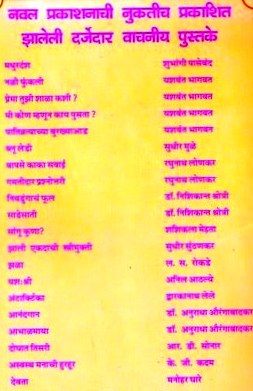 नवल प्रकाशनाची नुकतीच प्रकाशित
झालेली दर्जेदार वाचनीय पुस्तके
मधुरदंश शुभांगी पासेबंद
नळी फुंकली यशवंत भागवत
प्रेमा तुझी शाळा कशी ? यशवंत भागवत
मी कोण म्हणून काय पुसता ? यशवंत भागवत
पातिव्रत्याच्या बुरख्याआड यशवंत भागवत
ब्लु लेडी सुधीर मुळे
बापसे काका सवाई रघुनाथ लोणकर
गमतीदार प्रश्नोत्तरी रघुनाथ लोणकर
निवडुंगाचं फूल डॉ. निशिकान्त श्रोत्री
साडेसाती डॉ. निशिकान्त श्रोत्री
सांगू कुणा? शशिकला मेहता
झाली एकदाची स्त्रीमुक्ती सुधीर सुंठणकर
झळा ल. स. रोकडे
यशःश्री अनिल आठल्ये
अंटार्क्टिका द्वारकानाथ लेले
आनंदगान डॉ. अनुराधा औरंगाबादकर
आभाळमाया डॉ. अनुराधा औरंगाबादकर
दोघात तिसरी आर. डी. सोनार
अस्वस्थ मनाची हुरहूर के. जी. कदम
देवता मनोहर घारे